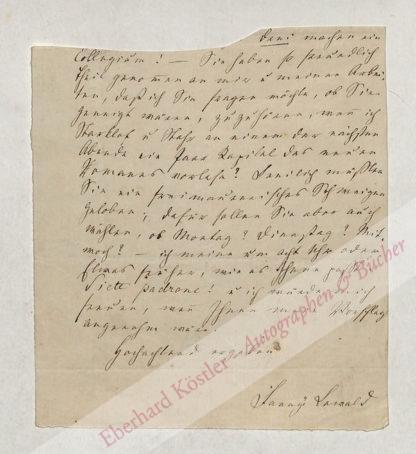 drei machen ein
Collegium! — Sie haben so freundlich
Theil genommen an mir u meinen Arbei-
ten, daß ich Sie fragen möchte, ob Sie
geneigt wären, zuzuhören, wenn ich
Scarlet u Stahr an einem der nächsten
Abende ein Paar Kapitel des neuen
Romanes vorlese? Freilich müßten
Sie ein freimaurerisches Schweigen
geloben; dafür sollen Sie aber auch
wählen, ob Montag? Dienstag? Mit-
woch? — ich meine um acht Uhr oder
Etwas früher, wie es Ihnen paßt.
Siete padrone! u ich würde mich
freuen, wenn Ihnen mein Vorschlag
angenehm wäre.
Hochachtend ergeben
Fanny Lewald
Eberhard Köstler - Autographen & Bücher